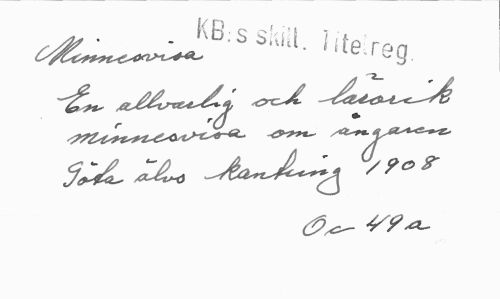 KB:s skill. Titelreg.
Minnesvisa
En allvarlig och lärorik
minnesvisa om ångaren
Göta älvs kantring 1908
Oc 49 a